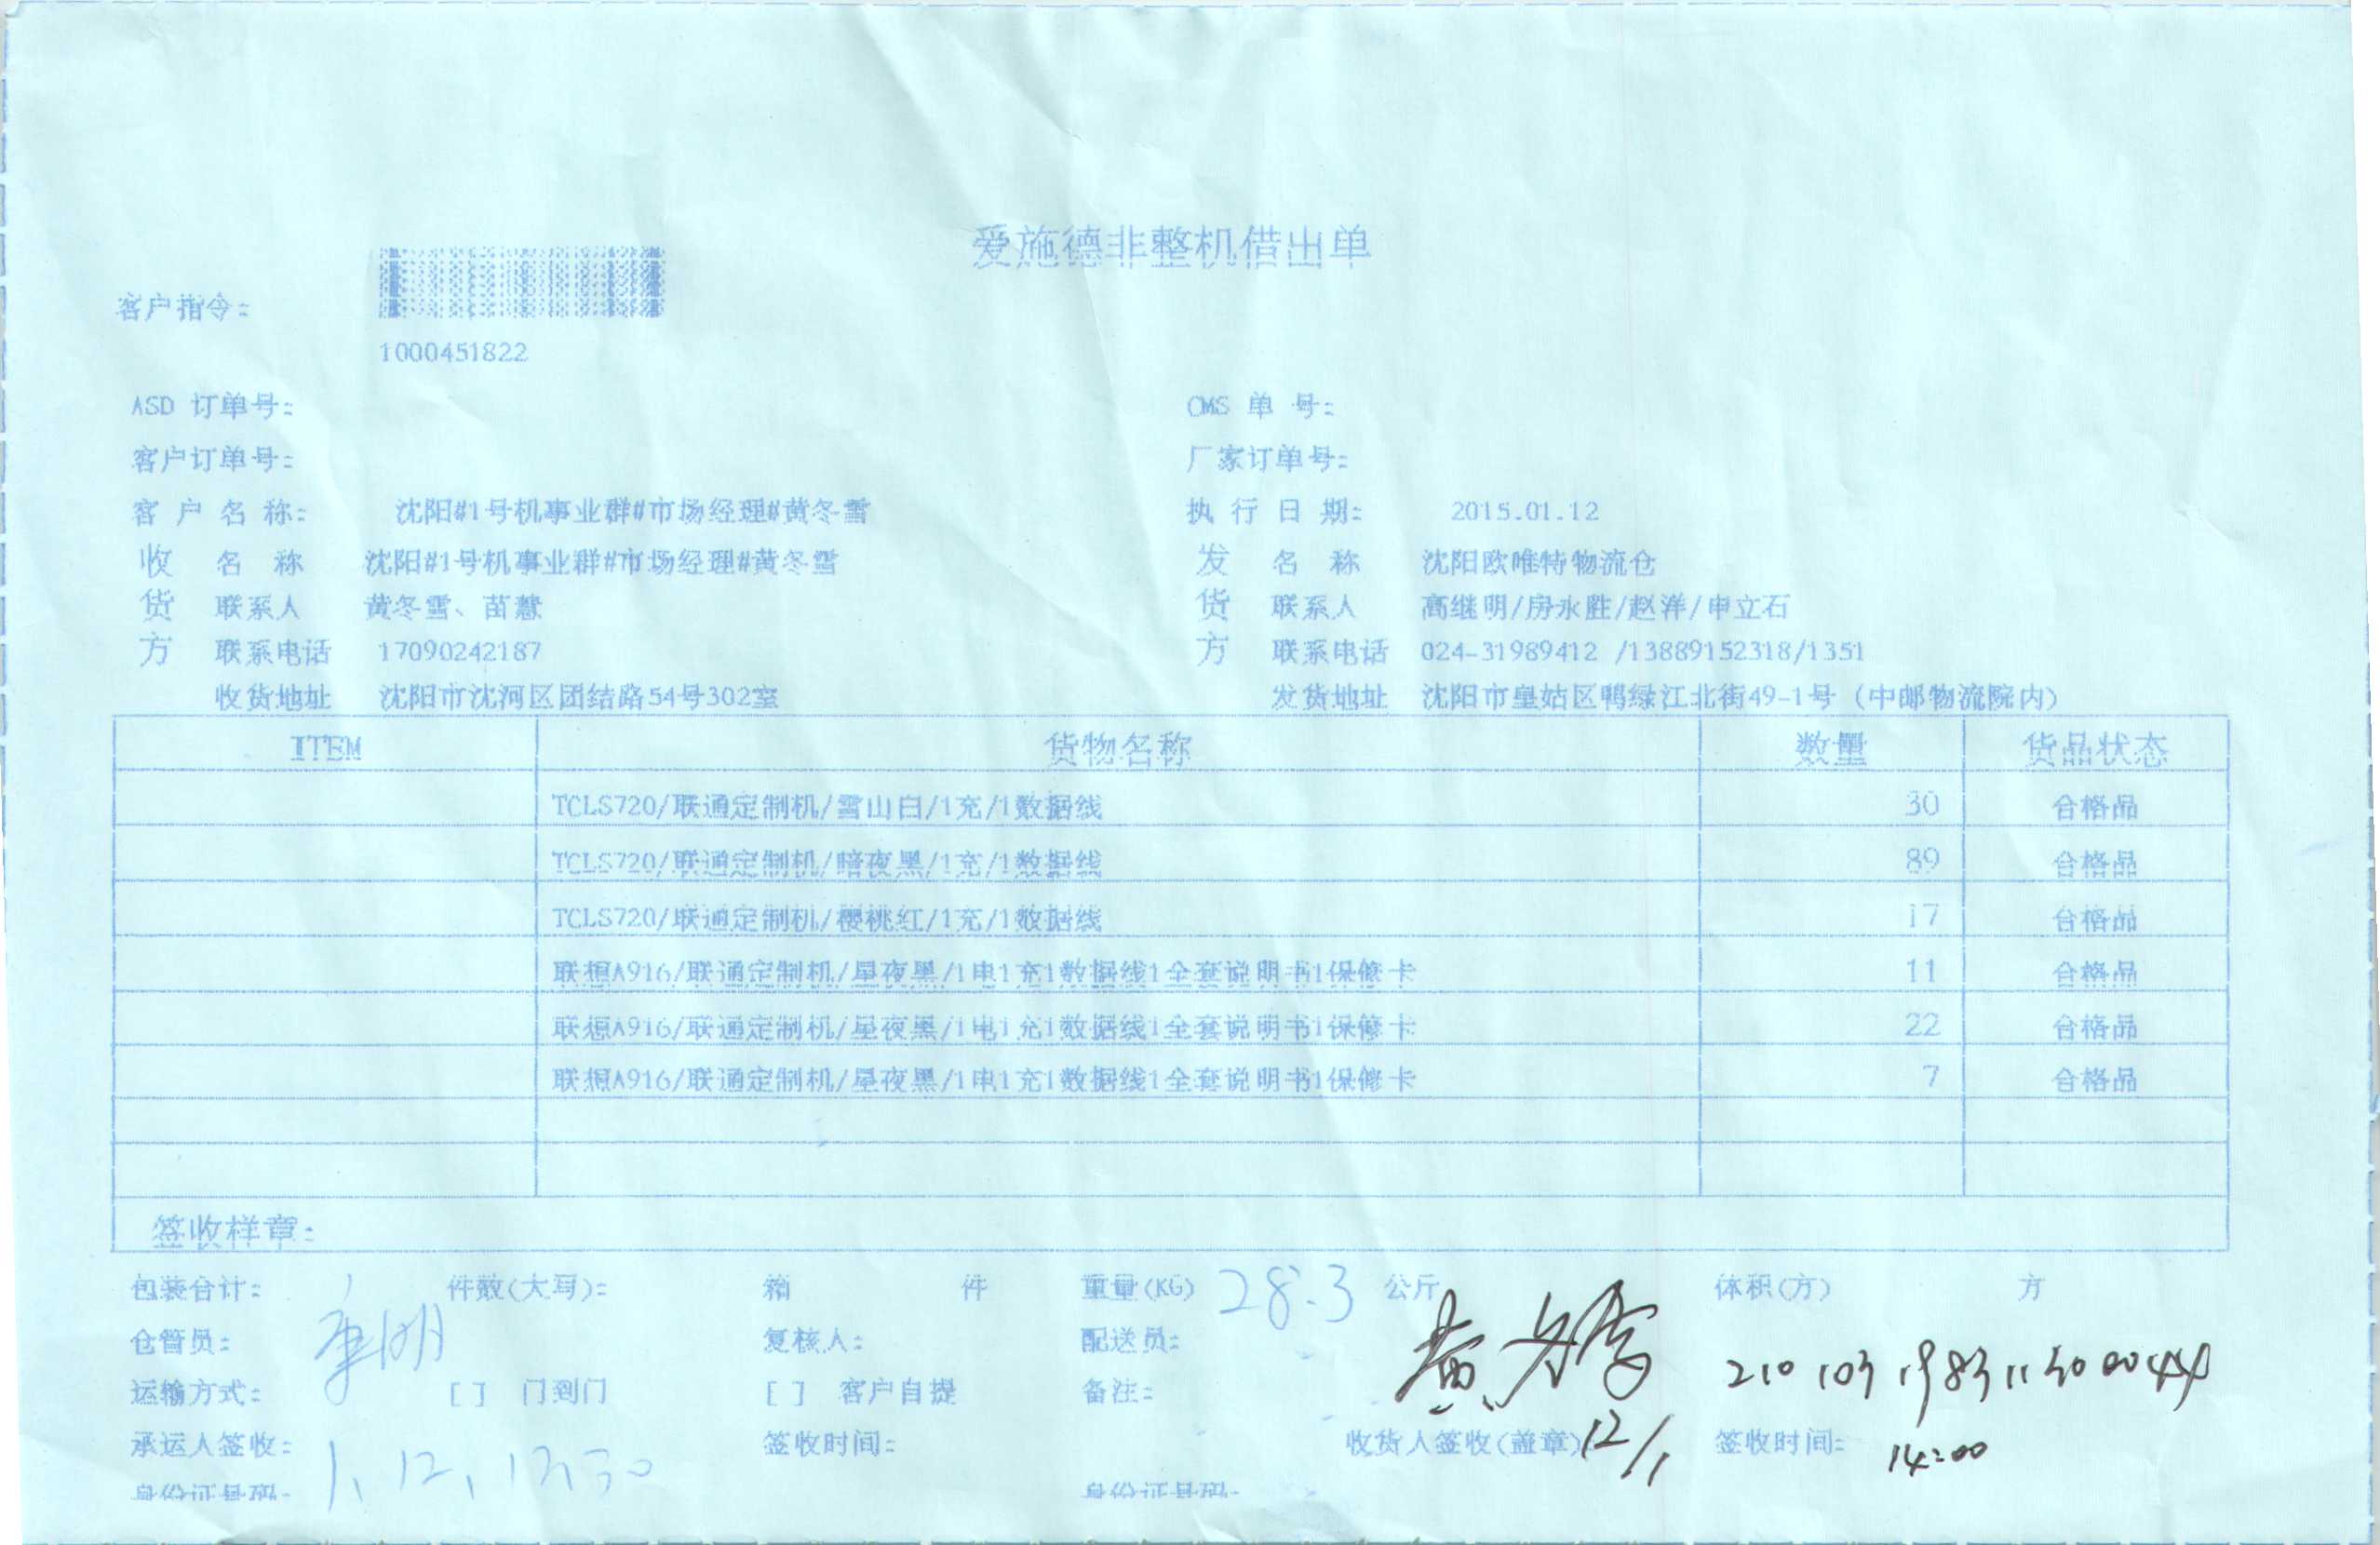 爱施德非整机借出单
客户指令:
1000451822
ASD 订单号: CMS 单 号:
客户订单号: 厂家订单号:
客 户 名 称: 沈阳#1号机事业群#市场经理#黄冬雪 执 行 日 期: 2015.01.12
收 名 称 沈阳#1号机事业群#市场经理#黄冬雪 发 名 称 沈阳欧唯特物流仓
货 联系人 黄冬雪、苗慧 货 联系人 高继明/房永胜/赵洋/申立石
方 联系电话 17090242187 方 联系电话 024-31989412 /13889152318/1351
收货地址 沈阳市沈河区团结路54号302室 发货地址 沈阳市皇姑区鸭绿江北街49-1号 (中邮物流院内)
ITEM 货物名称 数量 货品状态
TCLS720/联通定制机/雪山白/1充/1数据线 30 合格品
TCLS720/联通定制机/暗夜黑/1充/1数据线 89 合格品
TCLS720/联通定制机/樱桃红/1充/1数据线 17 合格品
联想A916/联通定制机/星夜黑/1电1充1数据线1全套说明书1保修卡 11 合格品
联想A916/联通定制机/星夜黑/1电1充1数据线1全套说明书1保修卡 22 合格品
联想A916/联通定制机/星夜黑/1电1充1数据线1全套说明书1保修卡 7 合格品
签收样章:
包装合计: 件数(大写): 箱 件 重量(KG) 28.3 公斤 体积(方) 方
仓管员: 复核人: 配送员: 黄冬雪
运输方式: [ ] 门到门 [ ] 客户自提 备注:
承运人签收: 签收时间: 收货人签收(盖章) 12/1 签收时间: 14:00
身份证号码: 身份证号码: